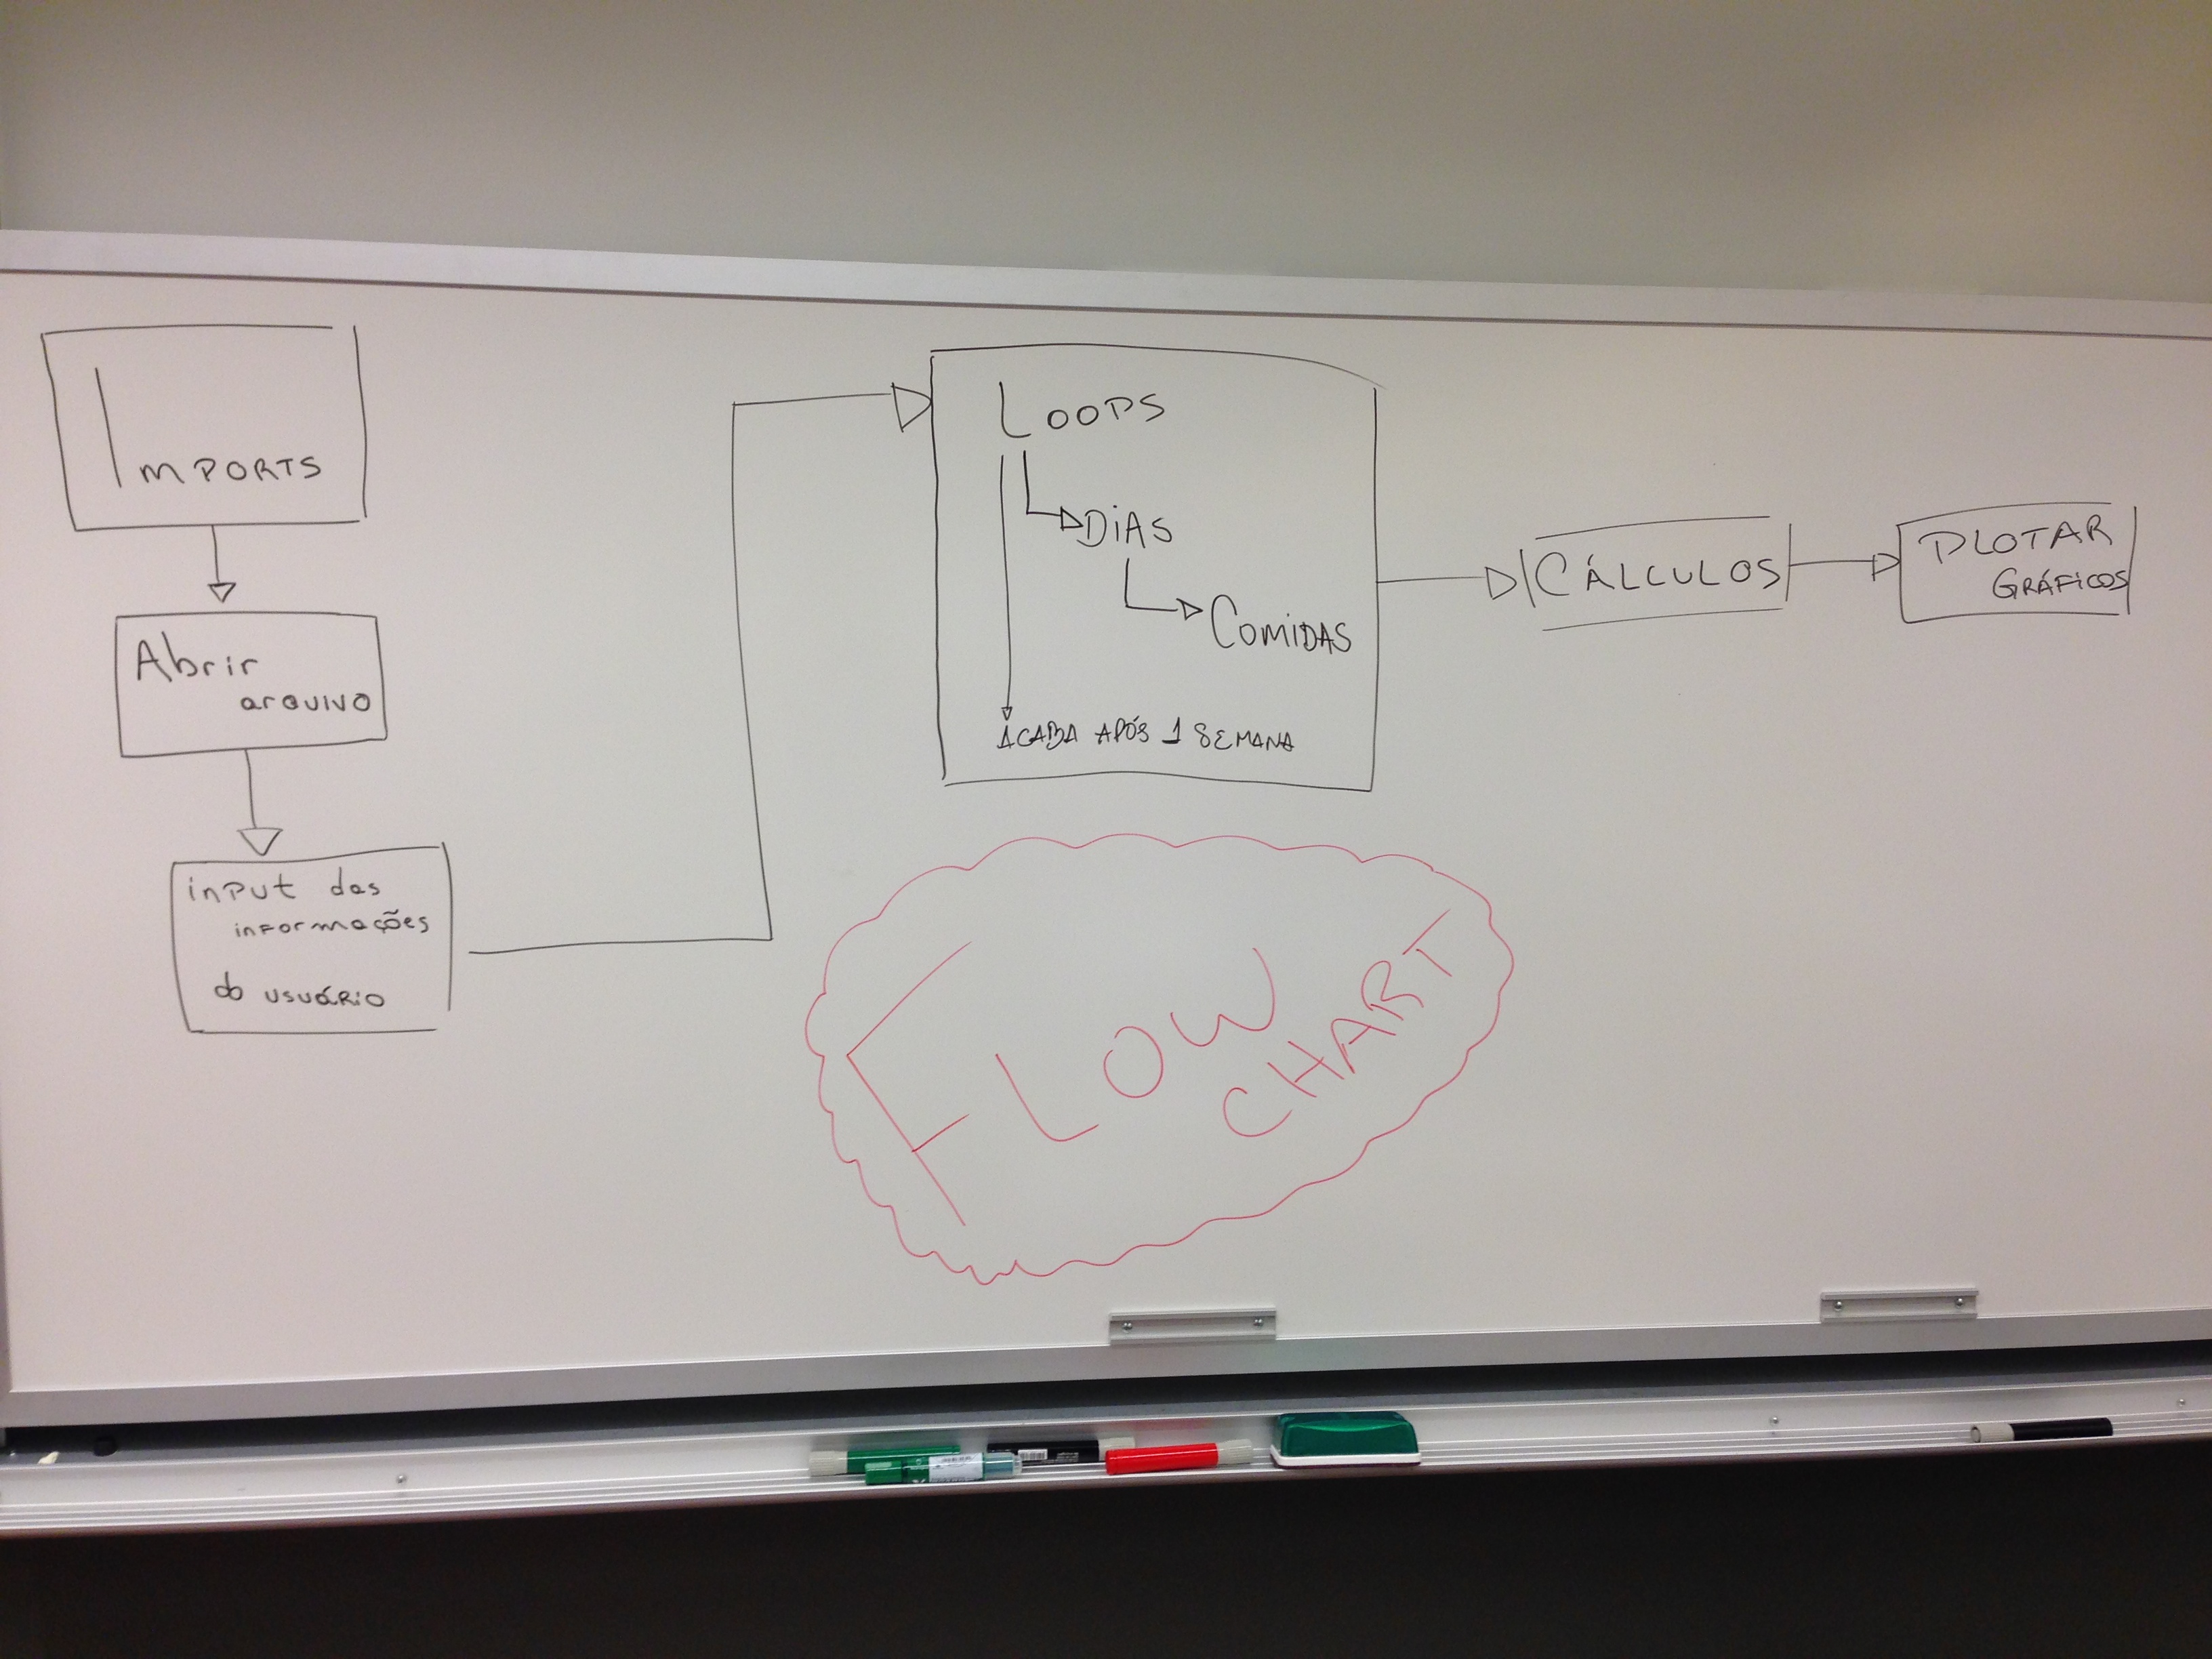 IMPORTS
Abrir
arquivo
input das
informações
do usuário
LOOPS
DiAS
COMIDAS
ACABA APÓS 1 SEMANA
CÁLCULOS
PLOTAR
GRÁFiCOS
FLOW
CHART